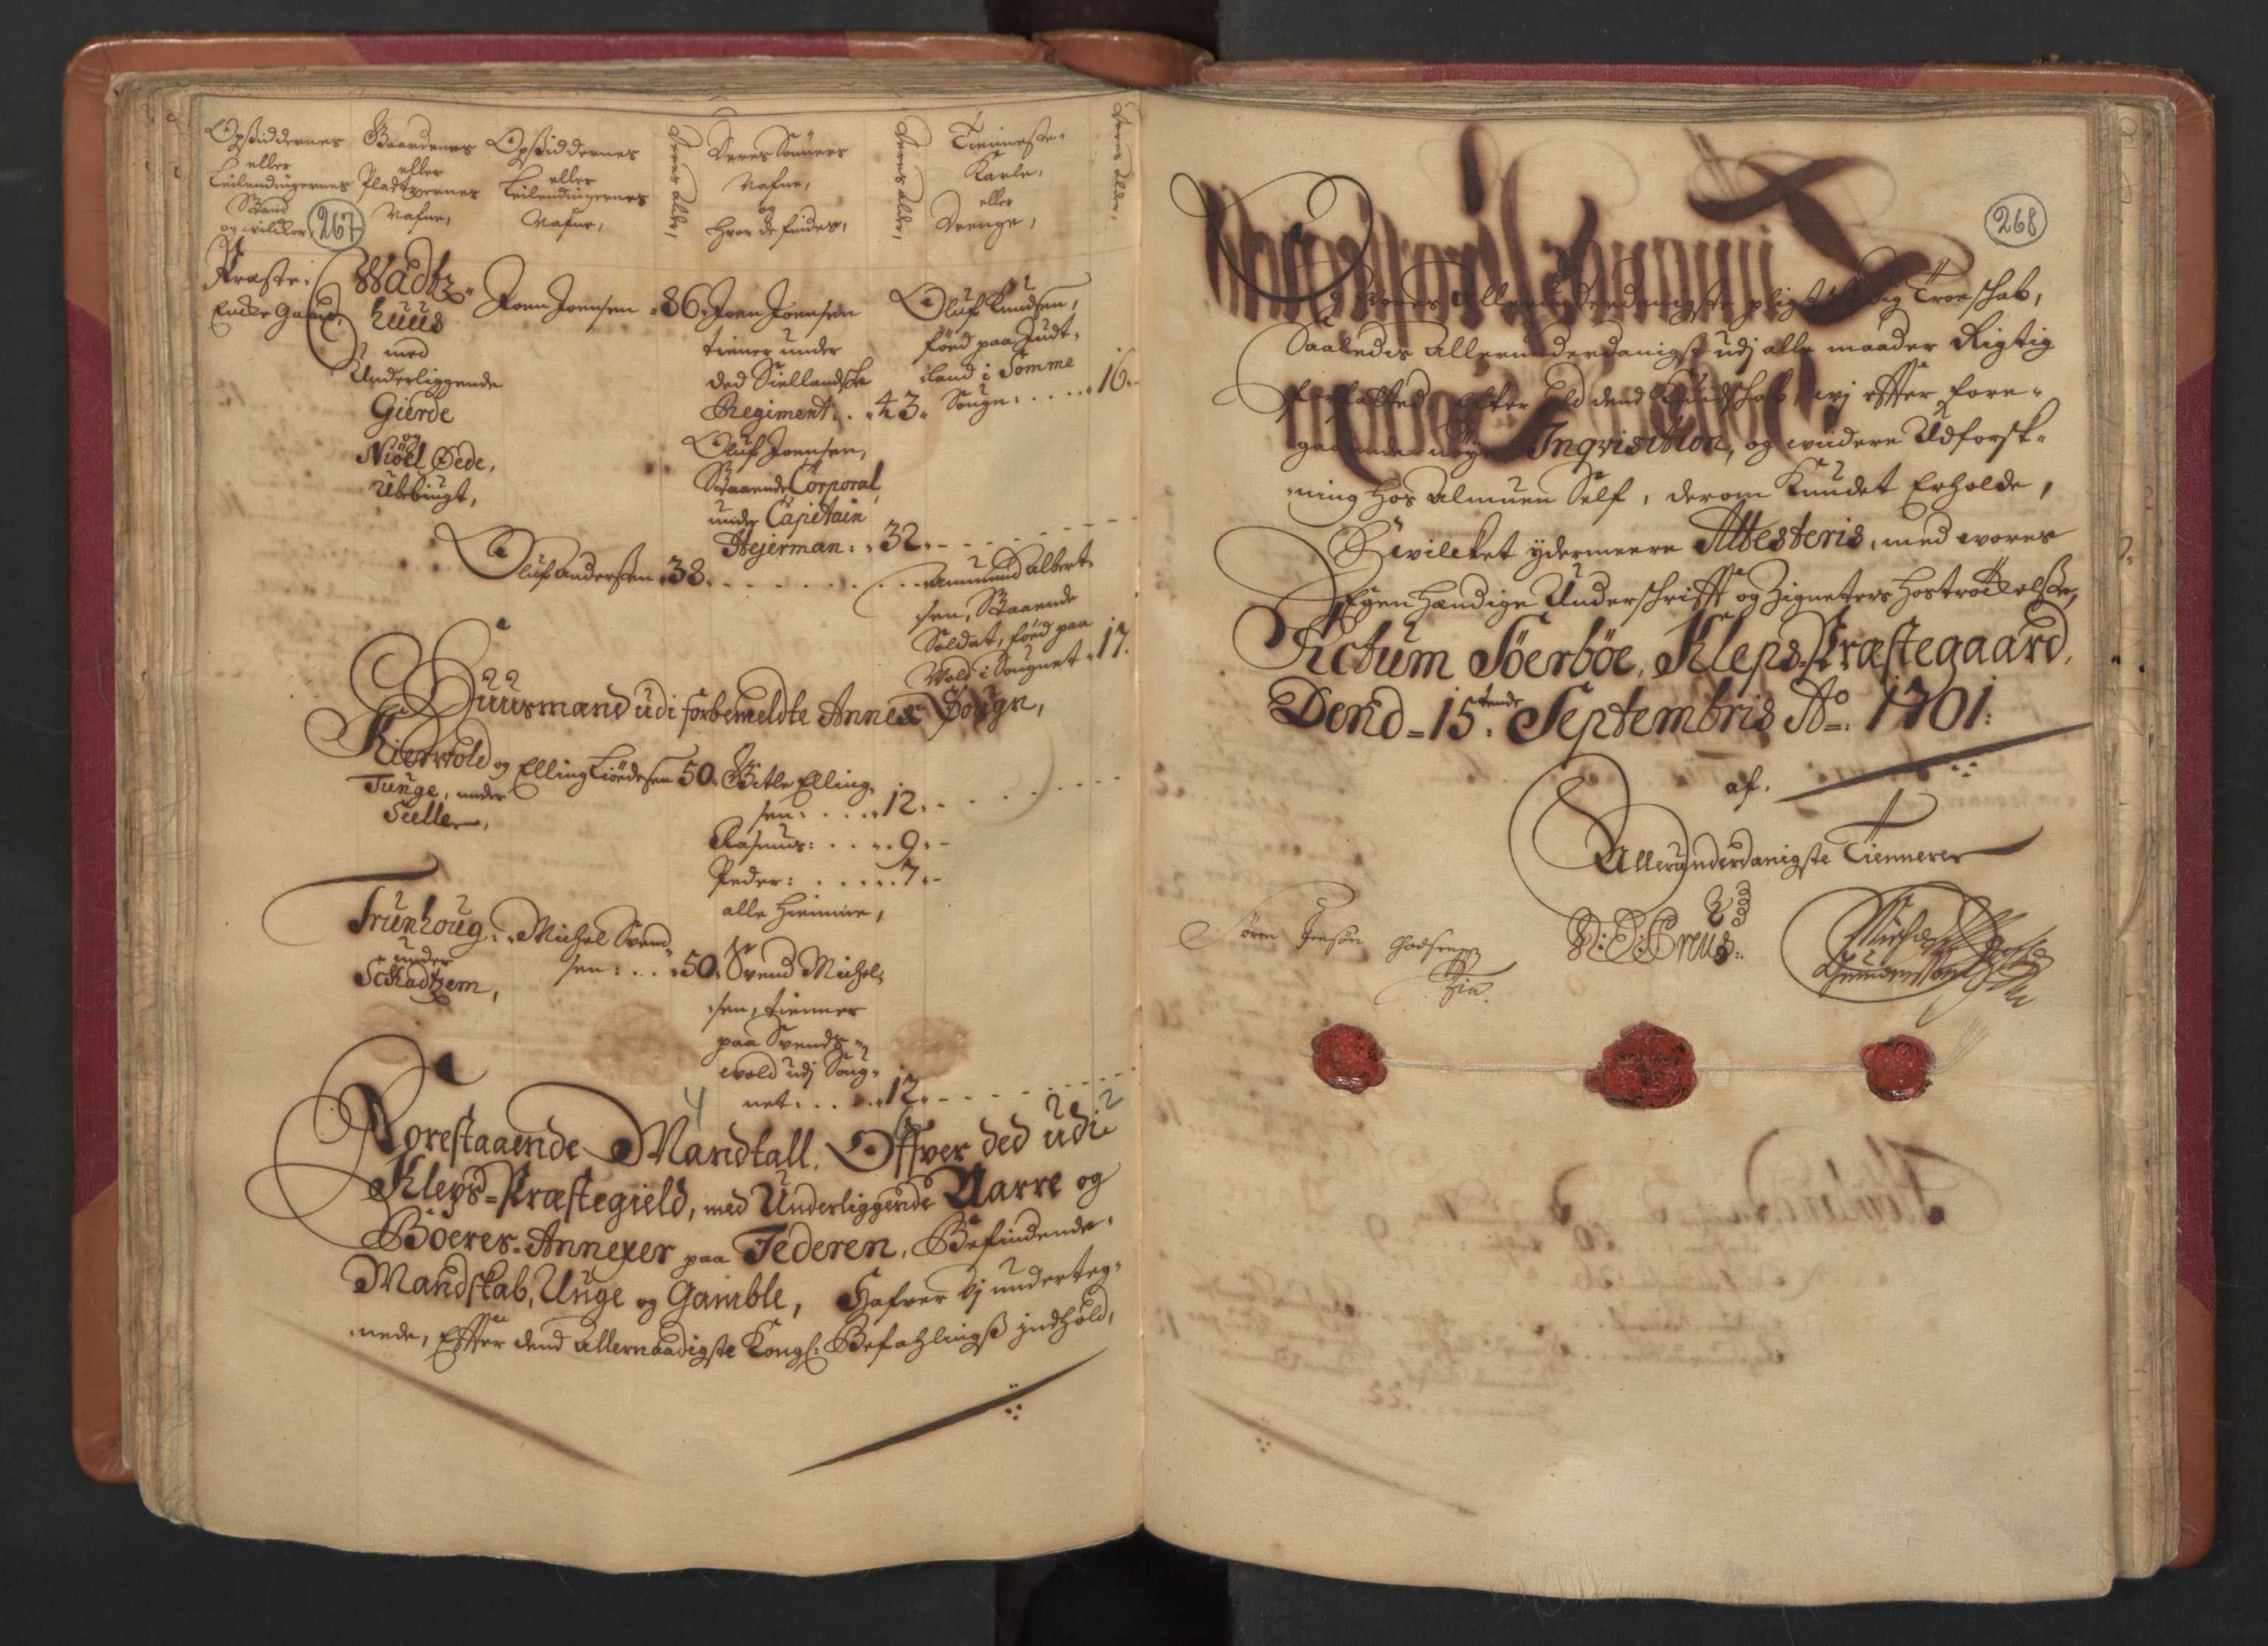 Opsiddernes
eller
Leilendingernes
Stand
og wilckor,
267
Gaardenes
eller
Pladtzernes
Nafne,
Opsiddernes
eller
Leilendingernes
Nafne,
Deres Alder,
Deres Sönners
Nafne,
og
Hvor de findes,
Deres Alder,
Tieneste-
Karle,
eller
Drenge,
Deres Alder,
Præste:
Encke Gaard,
Wadtz-
huus
med
Underliggende
Gierde
og
Niöel Öede,
Ubebugt,
Joen Joensen „86„
Joen Joensen
tiener under
ded Siellandske
Regiment: . „43„
Oluf Joensen,
Staaende Corporal
under Capitain
Hejerman: „32„
Oluf Knudsen,
föed paa Judt-
land i Somme
Sougn: . . . . „16„
Oluf Anderssen „38„
Ammund Albert-
sen, Staaende
Soldat, föed paa
Wold i Sougnet „17„
Huusmænd udi forbemeldte Annex Sougn,
Kierwold og
Tunge, under
Sielle,
Elling Tiördesen 50„
Gitle Elling-
sen: . . . „12„
Rasmus: . . . „9„
Peder: . . . . „7„
alle hiemme,
Trunhoug:
under
Schadtzem,
Michel Svend-
sen: . . . „50„
Svend Michel-
sen, tienner
paa Svends-
wold udj Soug-
net: . . . „12„
4 2
Forestaaende Mandtall. Offver ded udi
Kleps-Præstegield, med Underliggende Narre og
Böeres-Annexer paa Jederen, Befindende
Mandskab, Unge og Gamble, Hafver vj underteg-
nede, Effter dend allernaadigste Kongl: Befahlingß indhold,
268
og vores allerunderdanigste pligtschyldig Troeschab,
Saaledis allerunderdanigst udj alle maader Rigtig
forfatted Efter ald dend Kundschab, wj effter fore-
gaaende nöye Inqvisition, og wiidere Udforsk-
ning hos Almuen Self, derom kundet Erholde,
Hvilcket ydermeere Attesteris, med wores
Egenhændige Underschrifft og Zigneters hoströckelße,
Actum Söerböe, Kleps-Præstegaard,
Dend 15tende Septembris Ao: 1701:
af.
Allerunderdanigste Tiennere
Sören Jensön Godtzen